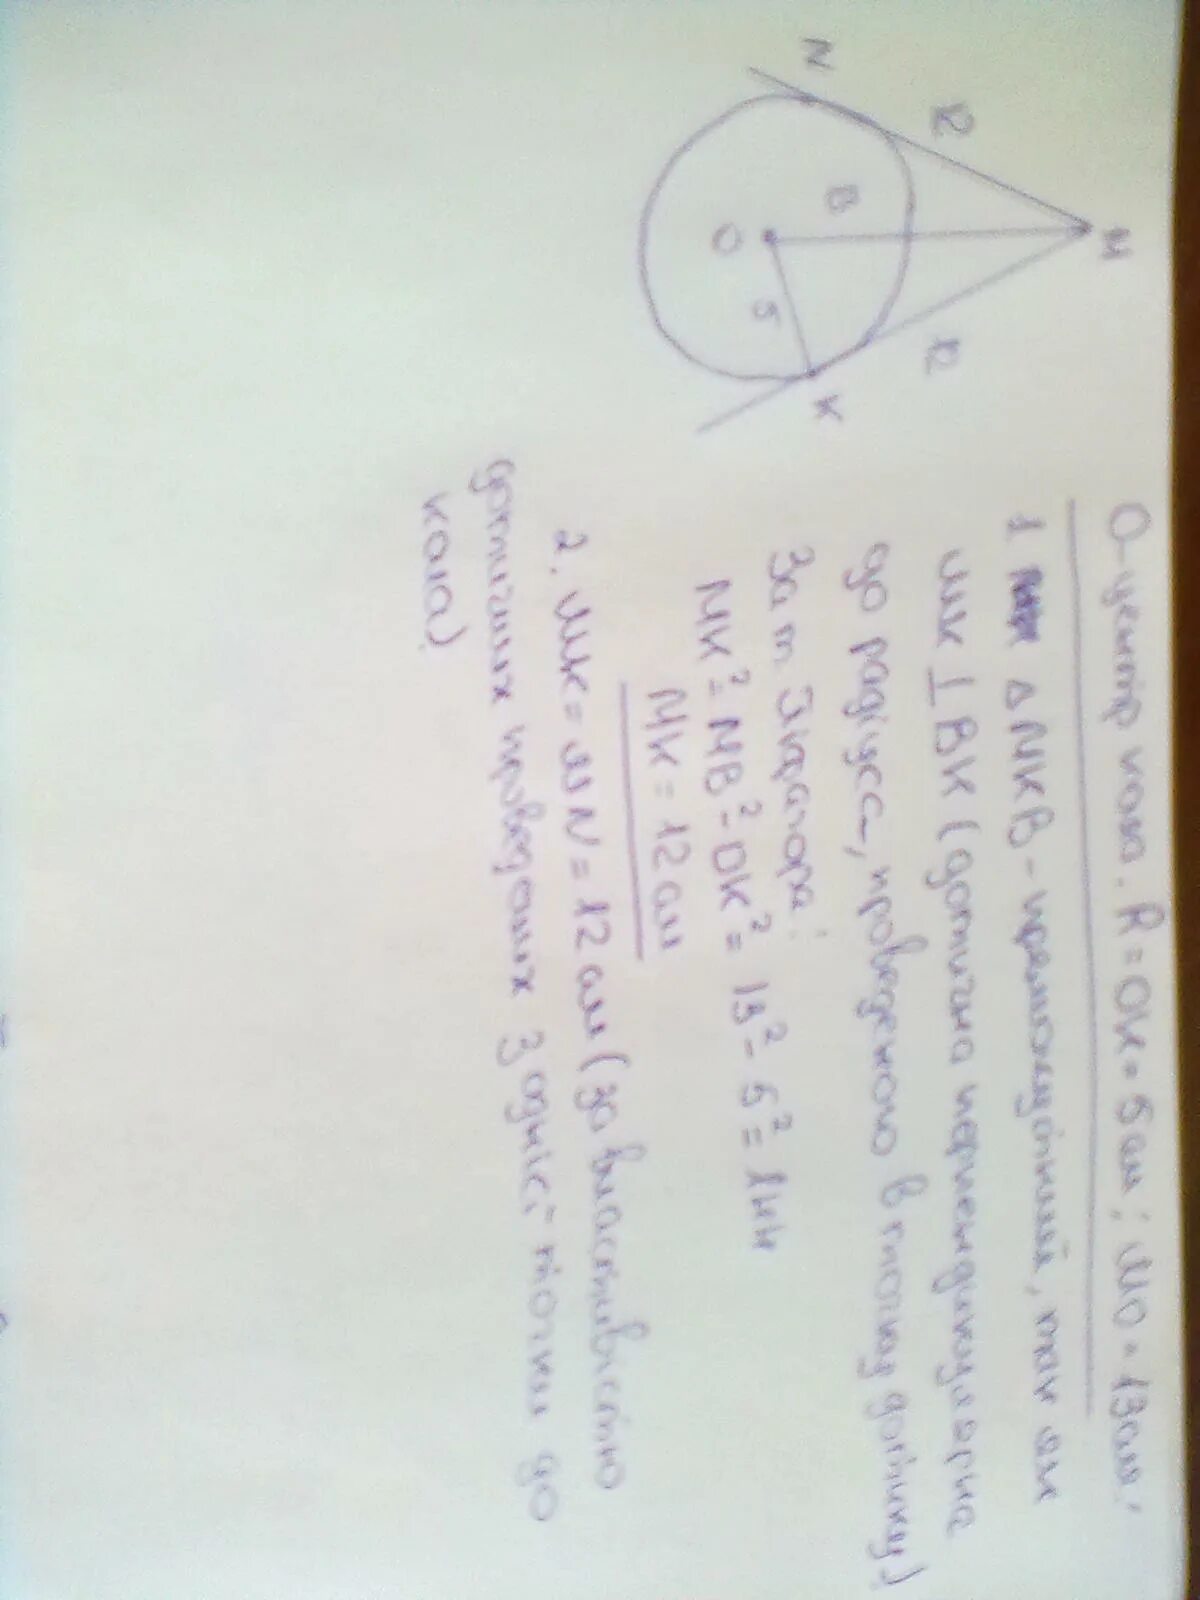 N
12
M
B
O
5
12
K
О-центр кола. R=OK=5см; МО=13см.
1 ΔMKB-прямокутний, так як
МК ⊥ BK (дотична перпендикулярна
до радіуса, проведеного в точку дотику)
За т. Піфагора:
MK²=MB²-OK²= 13²-5²=144
MK=12см
2. МК=МN=12см (за властивістю
дотичних проведених з однієї точки до
кола)